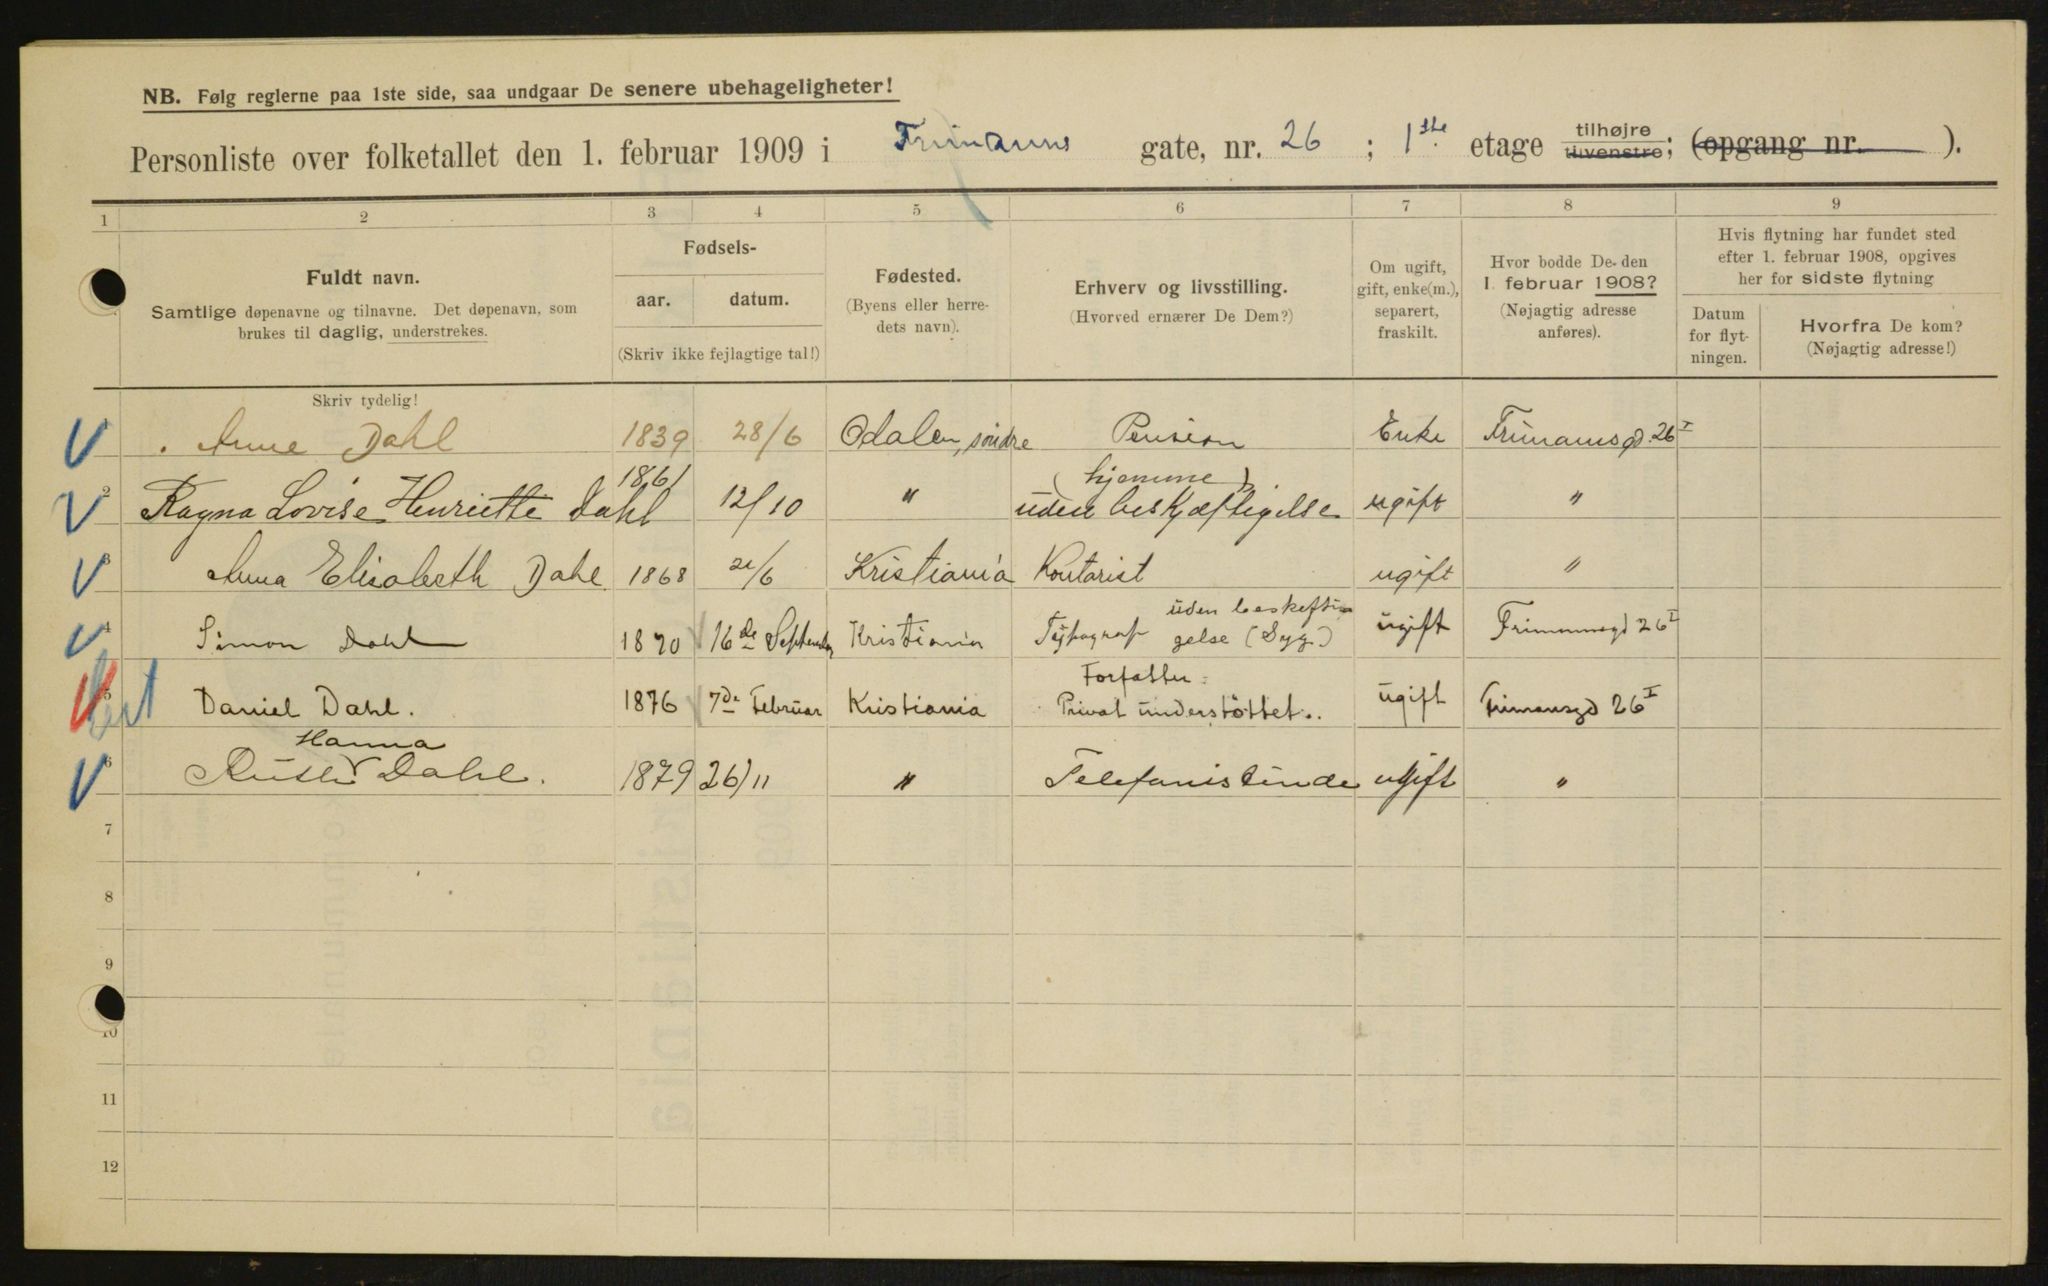 NB. Følg reglerne paa 1ste side, saa undgaar De senere ubehageligheter!
Personliste over folketallet den 1. februar 1909 i Frimanns gate, nr. 26 ; 1ste etage tilhøjre tilvenstre; (opgang nr. ).
1 2 3 4 5 6 7 8 9
Fuldt navn.
Samtlige døpenavne og tilnavne. Det døpenavn, som
brukes til daglig, understrekes.
Fødsels-
aar. datum.
(Skriv ikke fejlagtige tal!)
Fødested.
(Byens eller herre-
dets navn).
Erhverv og livsstilling.
(Hvorved ernærer De Dem?)
Om ugift,
gift, enke(m.),
separert,
fraskilt.
Hvor bodde De den
1. februar 1908?
(Nøjagtig adresse
anføres).
Hvis flytning har fundet sted
efter 1. februar 1908, opgives
her for sidste flytning
Datum
for flyt-
ningen.
Hvorfra De kom?
(Nøjagtig adresse!)
Skriv tydelig!
1 Anne Dahl 1839 28/6 Odalen, söndre Pension Enke Frimansgd. 26 I
2 Ragna Lovise Henriette Dahl 1861 12/10 " (hjemme) uden beskjæftigelse ugift "
3 Anna Elisabeth Dahl 1868 21/6 Kristiania Kontorist ugift "
4 Simon Dahl 1870 16de September Kristiania Typograf uden beskefti-
gelse (Syg.) ugift Frimannsgd 26 I
5 Daniel Dahl. 1876 7de Februar Kristiania Forfatter
Privat understöttet. ugift Frimansgd 26 I
Hanna
6 Dahl. 1879 26/11 " Telefonistinde ugift "
7
8
9
10
11
12